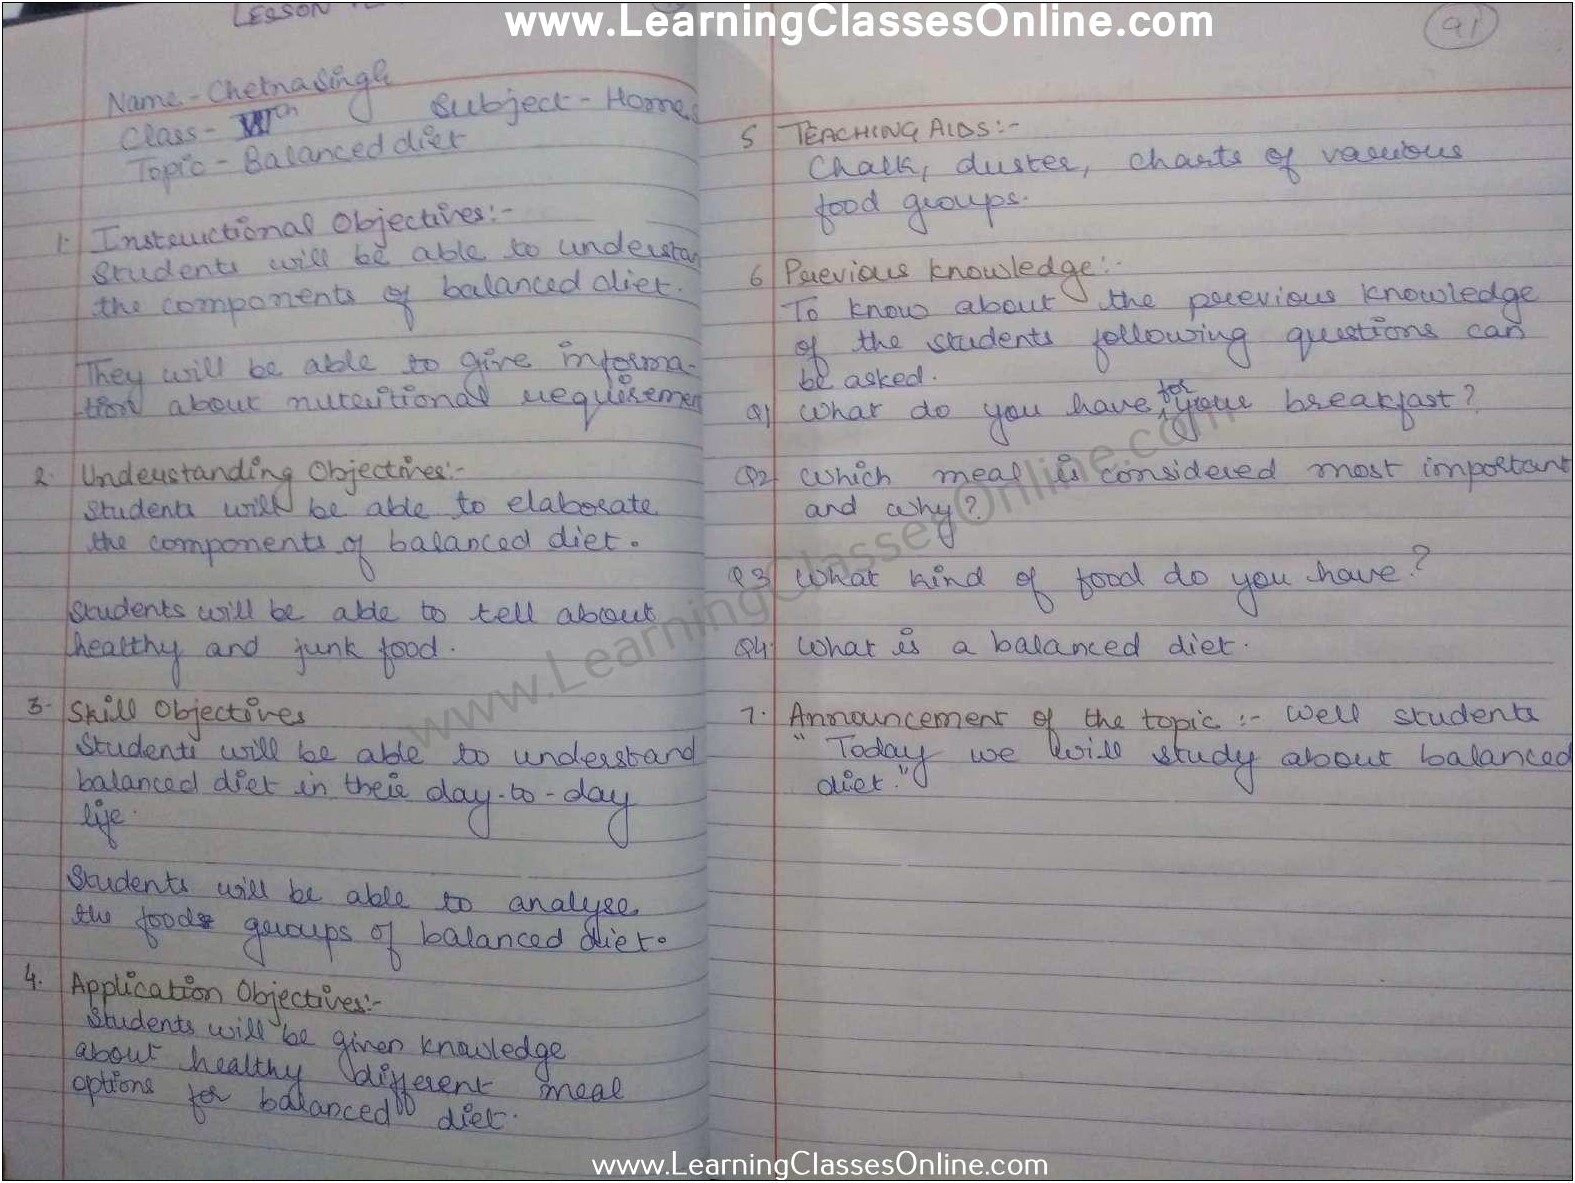 www.LearningClassesOnline.com
LESSON
Name - Chetna Singh
Class - Subject - Homes
Topic - Balanced diet
1. Instructional Objectives:-
Students will be able to understan
the components of balanced diet.
They will be able to give informa-
tion about nutritional requiremen
2. Understanding Objectives:-
Students will be able to elaborate
the components of balanced diet.
Students will be able to tell about
healthy and junk food.
3. Skill Objectives
Students will be able to understand
balanced diet in their day-to-day
life.
Students will be able to analyse
the food groups of balanced diet.
4. Application Objectives:-
Students will be given knowledge
about healthy different meal
options for balanced diet.
91
5 TEACHING AIDS:-
Chalk, duster, charts of various
food groups.
6 Previous knowledge:-
To know about the previous knowledge
of the students following questions can
be asked.
Q1 What do you have for your breakfast?
Q2 Which meal is considered most important
and why?
Q3 What kind of food do you have?
Q4. What is a balanced diet.
7. Announcement of the topic :- Well students
"Today we will study about balanced
diet."
www.LearningClassesOnline.com
www.LearningClassesOnline.com